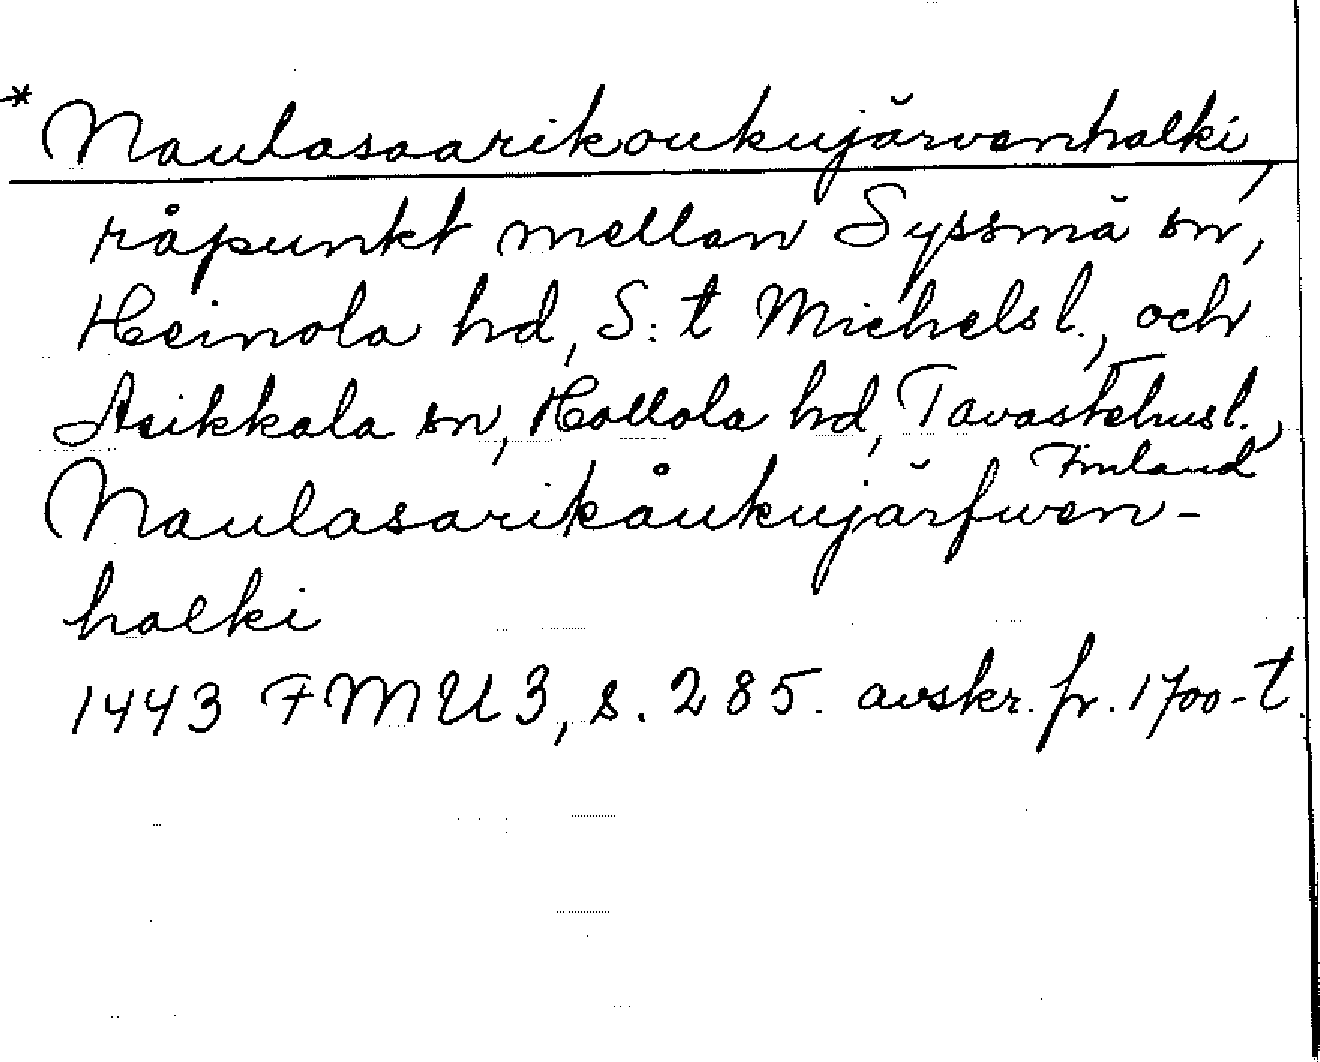 * Naulasaarikoukujärvenhalki,
råpunkt mellan Syssmä sn,
Heinola hd, S:t Michels l., och
Asikkala sn, Hollola hd, Tavastehus l.,
Finland
Naulasarikåukujärfwen-
halki
1443 FMU 3, s. 285. avskr. fr. 1700-t.